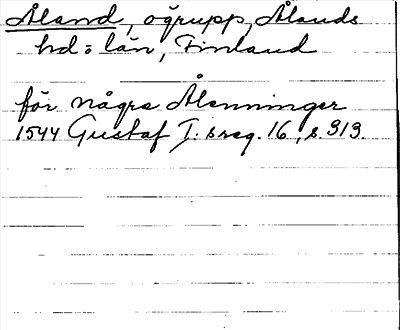 Åland, ögrupp, Ålands
hd = län, Finland
för några Ålenningar
1544 Gustaf I:s reg. 16, s. 313.